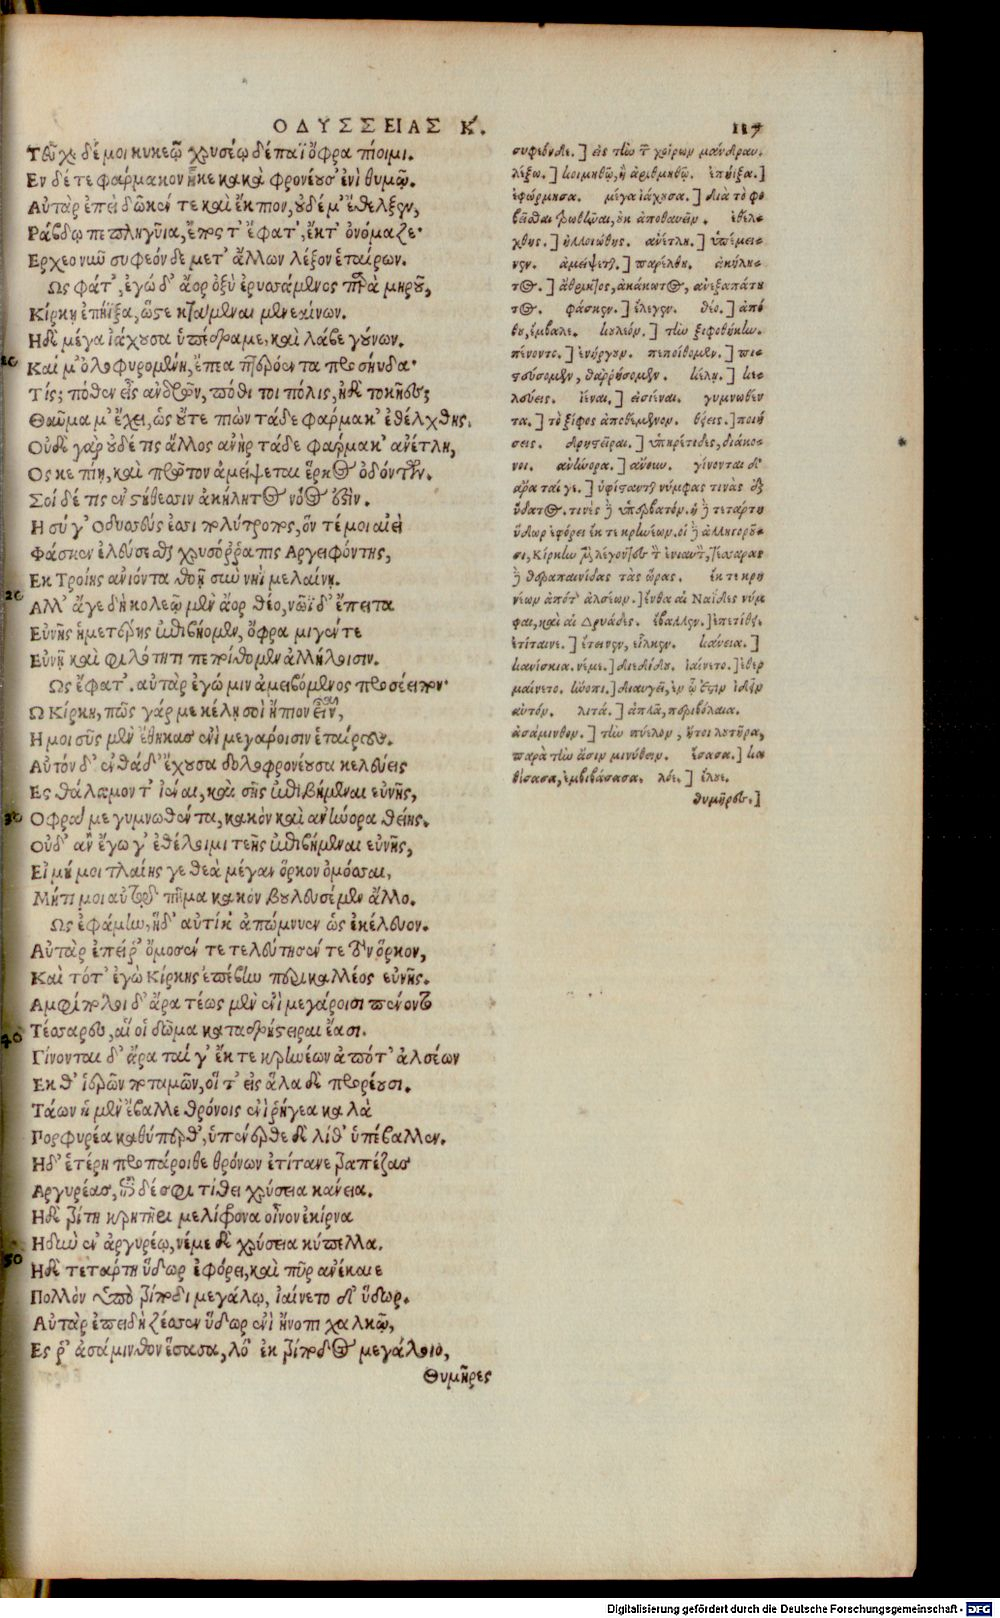 ΟΔΥΣΣΕΙΑΣ Κ.
117
Τεῦχε δέ μοι κυκεῶ χρυσέῳ δέπαϊ ὄφρα πίοιμι.
Εν δέ τε φάρμακον ἧκε κακὰ φρονέουσ' ἐνὶ θυμῷ.
Αὐτὰρ ἐπεὶ δῶκέν τε καὶ ἔκπιον, οὐδέ μ' ἔθελξεν,
Ράβδῳ πεπληγῦια, ἔπος τ' ἔφατ', ἔκτ' ὀνόμαζε·
Ερχεο νῦν συφεόνδε μετ' ἄλλων λέξον ἑταίρων.
Ως φάτ', ἐγὼ δ' ἄορ ὀξὺ ἐρυσσάμενος παρὰ μηροῦ,
Κίρκῃ ἐπήϊξα, ὥστε κτάμεναι μενεαίνων.
Ηδὲ μέγα ἰάχουσα ὑπέδραμε, καὶ λάβε γούνων.
20
Καί μ' ὀλοφυρομένη, ἔπεα πτερόεντα προσηύδα·
Τίς; πόθεν εἶς ἀνδρῶν, πόθι τοι πόλις, ἠδὲ τοκῆες;
Θαῦμα μ' ἔχει, ὡς οὔτι πιὼν τάδε φάρμακ' ἐθέλχθης.
Οὐδὲ γὰρ οὐδέ τις ἄλλος ἀνὴρ τάδε φάρμακ' ἀνέτλη,
Ος κε πίῃ, καὶ πρῶτον ἀμείψεται ἕρκος ὀδόντων.
Σοὶ δέ τις ἐν στήθεσσιν ἀκήλητος νόος ἐστίν.
Η σύ γ' Οδυσσεύς ἐσσι πολύτροπος, ὅν τέ μοι αἰεὶ
Φάσκεν ἐλεύσεσθαι χρυσόρραπις Αργειφόντης,
Εκ Τροίης ἀνιόντα θοῇ σὺν νηῒ μελαίνῃ.
20
Αλλ' ἄγε δὴ κολεῷ μὲν ἄορ θέο, νῶϊ δ' ἔπειτα
Εὐνῆς ἡμετέρης ἐπιβήομεν, ὄφρα μιγέντε
Εὐνῇ καὶ φιλότητι πεποίθομεν ἀλλήλοισιν.
Ως ἔφατ'. αὐτὰρ ἐγώ μιν ἀμειβόμενος προσέειπον·
Ω Κίρκη, πῶς γάρ με κέλῃ σοὶ ἤπιον εἶναι,
Η μοι σῦς μὲν ἔθηκας ἐνὶ μεγάροισιν ἑταίρους.
Αὐτόν δ' ἐνθάδ' ἔχουσα δολοφρονέουσα κελεύεις
Ες θάλαμον τ' ἰέναι, καὶ σῆς ἐπιβήμεναι εὐνῆς,
30
Οφρα με γυμνωθέντα, κακὸν καὶ ἀνήνορα θείης.
Οὐδ' ἂν ἔγωγ' ἐθέλοιμι τεῆς ἐπιβήμεναι εὐνῆς,
Εἰ μή μοι τλαίης γε θεὰ μέγαν ὅρκον ὀμόσσαι,
Μήτι μοι αὐτῷ πῆμα κακὸν βουλευσέμεν ἄλλο.
Ως ἐφάμην, ἡδ' αὐτίκ' ἀπώμνυεν ὡς ἐκέλευον.
Αὐτὰρ ἐπεί ῥ' ὄμοσέν τε τελεύτησέν τε τὸν ὅρκον,
Καὶ τότ' ἐγὼ Κίρκης ἐπέβην περικαλλέος εὐνῆς.
Αμφίπολοι δ' ἄρα τέως μὲν ἐνὶ μεγάροισι πένοντο
40
Τέσσαρες, αἵ οἱ δῶμα κάτα δρήστειραι ἔασι.
Γίνονται δ' ἄρα ταί γ' ἔκ τε κρηνέων ἀπότ' ἀλσέων
Εκ θ' ἱερῶν ποταμῶν, οἵ τ' εἰς ἅλα δὲ προρέουσι.
Τάων ἡ μὲν ἔβαλλε θρόνοις ἐνὶ ῥήγεα καλὰ
Πορφυρέα καθύπερθ', ὑπένερθε δὲ λίθ' ὑπέβαλλεν.
Ηδ' ἑτέρη προπάροιθε θρόνων ἐτίταινε τραπέζας
Αργυρέας, ἐπὶ δέ σφι τίθει χρύσεια κάνεια.
Ηδὲ τρίτη κρητῆρι μελίφρονα οἶνον ἐκίρνα
Ηδὺν ἐν ἀργυρέῳ, νέμε δὲ χρύσεια κύπελλα.
50
Ηδὲ τετάρτη ὕδωρ ἐφόρει, καὶ πῦρ ἀνέκαιε
Πολλὸν ὑπὸ τρίποδι μεγάλῳ, ἰαίνετο δ' ὕδωρ.
Αὐτὰρ ἐπειδὴ ζέσσεν ὕδωρ ἐνὶ ἤνοπι χαλκῷ,
Ες ῥ' ἀσάμινθον ἕσασα, λό' ἐκ τρίποδος μεγάλοιο,
Θυμῆρες
συφεόνδε.] εἰς τὴν τῶν χοίρων μάνδραν.
λέξω.] κοιμηθῷ, ἢ ἀριθμηθῷ. ἐπήιξα.]
ἐφώρμησα. μέγα ἰάχουσα.] διὰ τὸ φο
βεῖσθαι φωνῆναι, οὐκ ἀποθανῶν. ἐθέλ-
χθης.] ἠλλοιώθης. ἀνέτλη.] ὑπέμει-
νεν. ἀμείψεται.] παρέλθῃ. ἀκήλη-
τος.] ἄθρικτος, ἀκάκωτος, ἀνεξαπάτη
τος. φάσκεν.] ἔλεγεν. θέο.] ἀπό
θου, ἔμβαλε. κουλεόν.] τὴν ξιφοθήκην.
πένοντο.] ἐνήργουν. πεποίθομεν.] πι-
στεύσομεν, θαρρήσομεν. κέλῃ.] κε-
λεύεις. ἰέναι.] εἰσιέναι. γυμνωθέν
τα.] τὸ ξίφος ἀποθέμενον. θείης.] ποιή
σεις. δρηστεῖραι.] ὑπηρέτιδες, διάκο-
νοι. ἀνήνορα.] ἄνανδρον. γίνονται δ'
ἄρα ταί γε.] ὑφίσταται νύμφας τινὰς ἐξ
ὕδατος. τινὲς δὲ ὑπερβατόν. ἡ δὲ τετάρτη
ὕδωρ ἐφόρει ἔκ τε κρηνέων. οἱ δὲ ἀλληγοροῦ-
σι, Κίρκην μὲν λέγοντες τὸν ἐνιαυτὸν, τέσσαρας
δὲ θεραπαινίδας τὰς ὥρας. ἔκ τε κρη
νέων ἀπότ' ἀλσέων.] ἔνθα αἱ Ναΐδες νύμ
φαι, καὶ αἱ Δρυάδες. ἔβαλλεν.] ἐπετίθει.
ἐτίταινε.] ἔτεινεν, εἷλκεν. κάνεια.]
κανίσκια. νέμε.] διεδίδου. ἰαίνετο.] ἐθερ
μαίνετο. ἤνοπι.] διαυγεῖ, ἐν ᾧ ἔστιν ἰδεῖν
αὐτόν. λιτά.] ἁπλᾶ, περιβόλαια.
ἀσάμινθον.] τὴν πύελον, ἤτοι λουτῆρα,
παρὰ τὴν ἄσιν μινύθειν. ἕσασα.] κα
θίσασα, ἐμβιβάσασα. λόε.] ἔλουε.
θυμῆρες.]
Digitalisierung gefördert durch die Deutsche Forschungsgemeinschaft - DFG